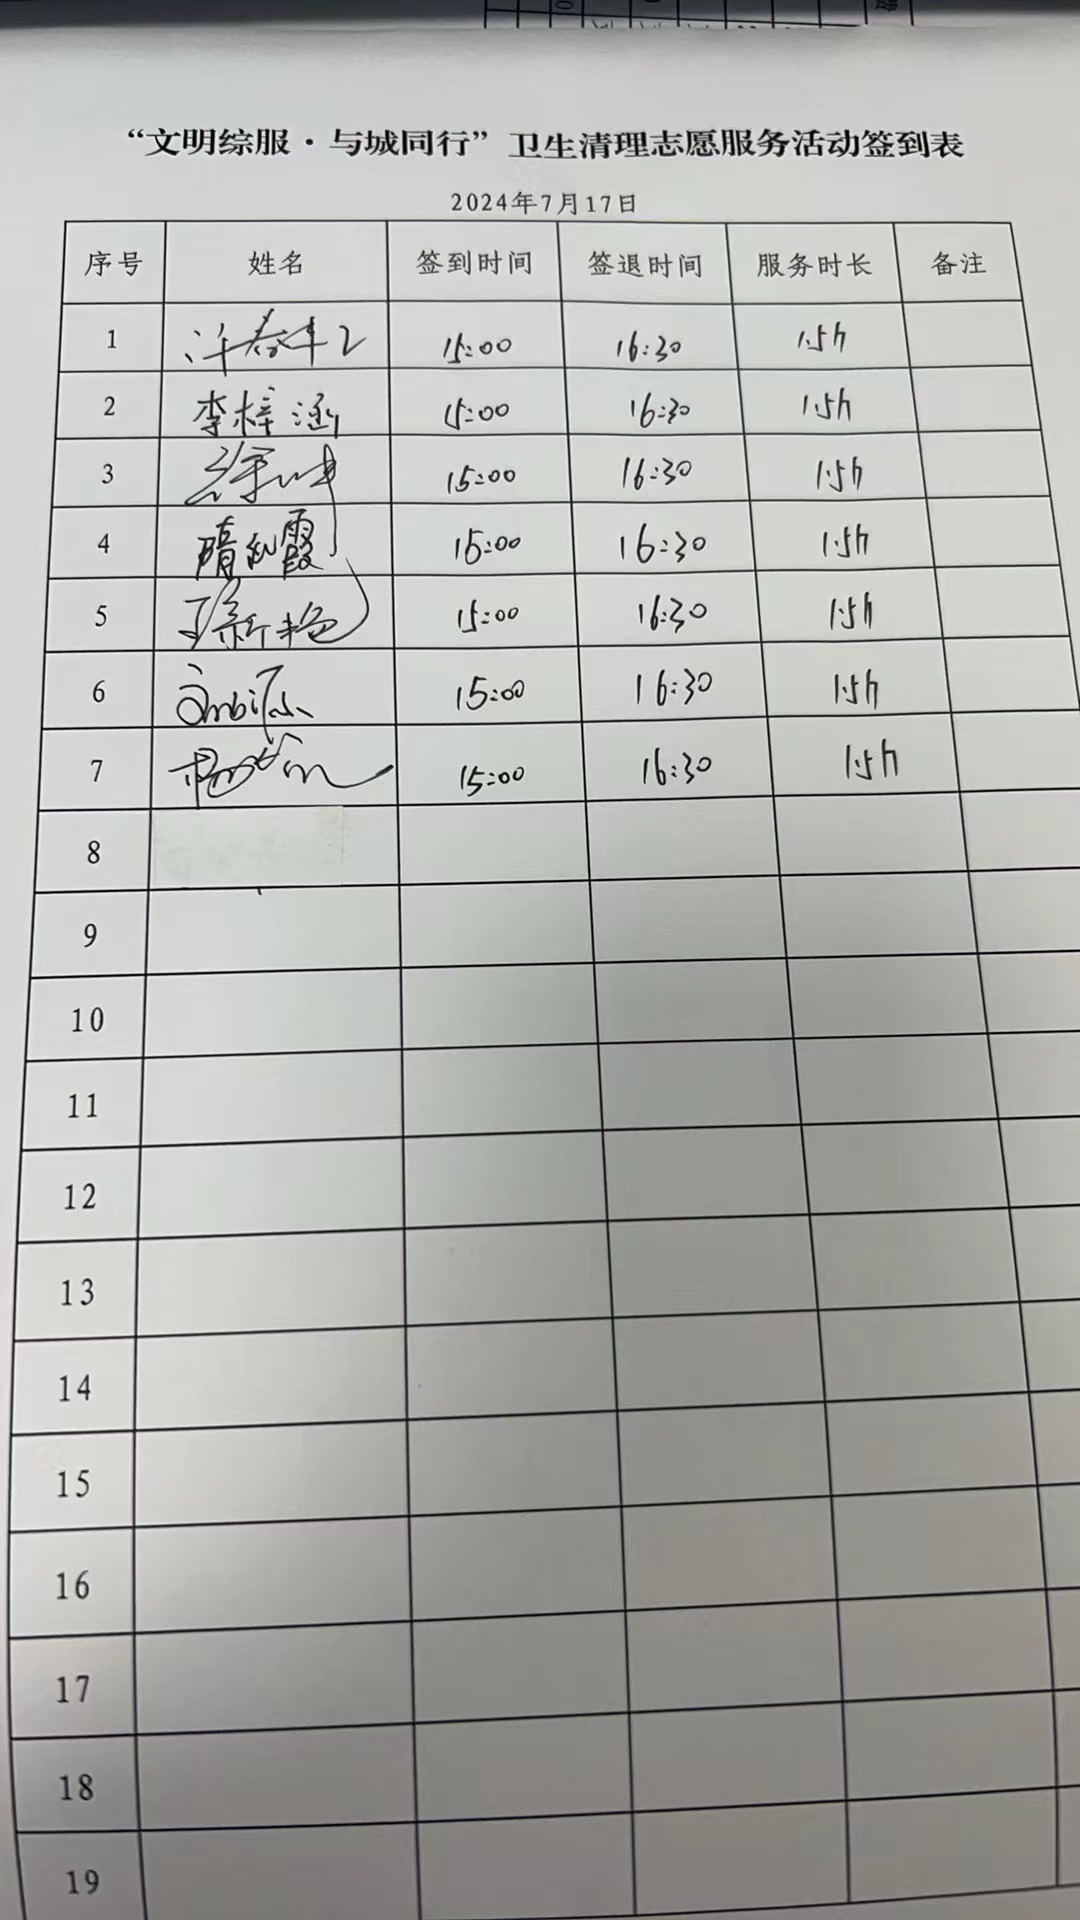 “文明综服·与城同行”卫生清理志愿服务活动签到表
2024年7月17日
序号 姓名 签到时间 签退时间 服务时长 备注
1 15:00 16:30 1.5h
2 李梓涵 15:00 16:30 1.5h
3 15:00 16:30 1.5h
4 隋 霞 15:00 16:30 1.5h
5 15:00 16:30 1.5h
6 15:00 16:30 1.5h
7 15:00 16:30 1.5h
8
9
10
11
12
13
14
15
16
17
18
19